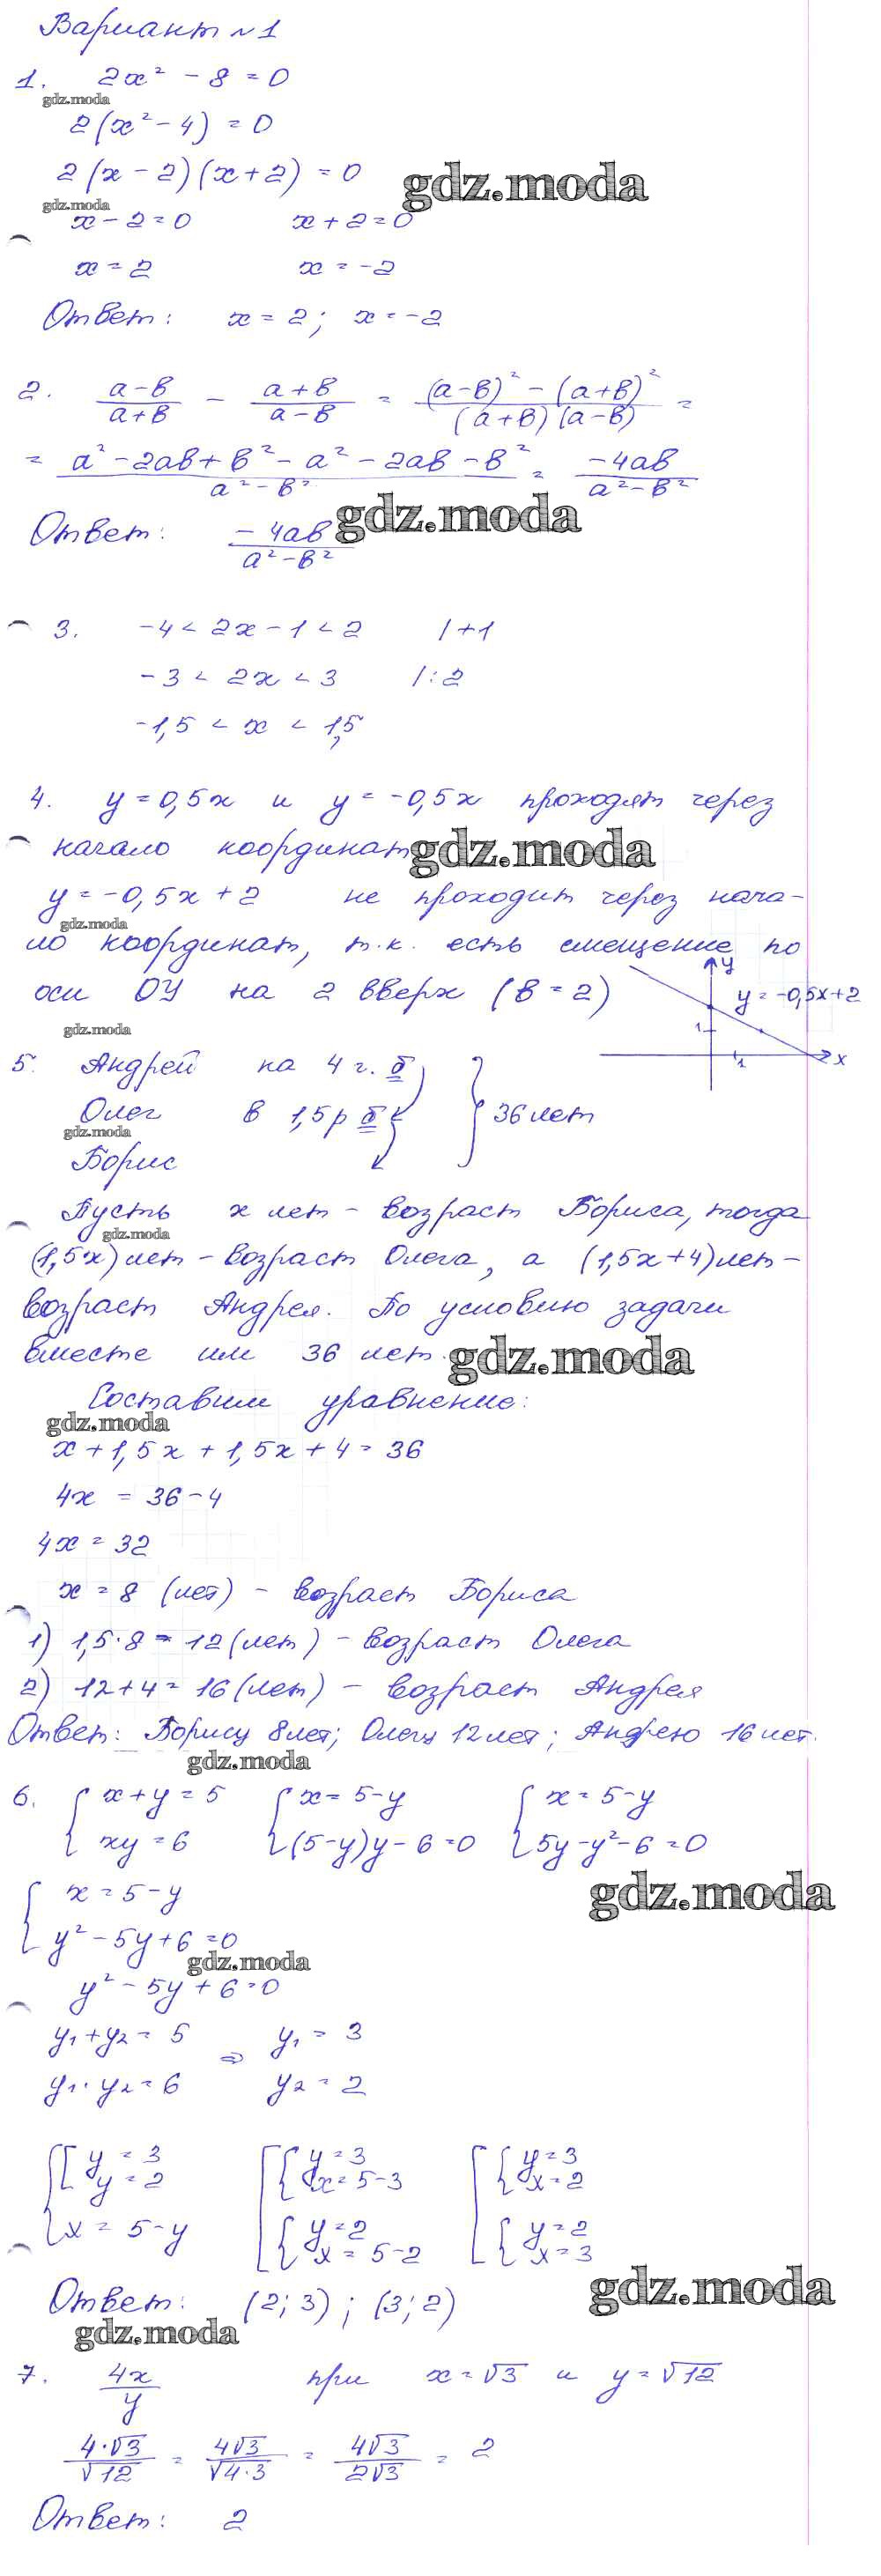 Вариант №1
1. 2x² - 8 = 0
gdz.moda
2(x² - 4) = 0
2(x - 2)(x + 2) = 0
gdz.moda
gdz.moda
x - 2 = 0 x + 2 = 0
x = 2 x = -2
Ответ: x = 2; x = -2
2. (a-в)/(a+в) - (a+в)/(a-в) = ((a-в)² - (a+в)²)/((a+в)(a-в)) =
= (a² - 2aв + в² - a² - 2aв - в²)/(a² - в²) = (-4aв)/(a² - в²)
gdz.moda
Ответ: (-4aв)/(a² - в²)
3. -4 < 2x - 1 < 2 | +1
-3 < 2x < 3 | :2
-1,5 < x < 1,5
4. y = 0,5x и y = -0,5x проходят через
начало координат
gdz.moda
y = -0,5x + 2 не проходит через нача-
gdz.moda
ло координат, т.к. есть смещение по
оси ОУ на 2 вверх (в = 2)
y
y = -0,5x+2
1
1
x
gdz.moda
5. Андрей на 4 г. б
Олег в 1,5 р б
36 лет
gdz.moda
Борис
Пусть x лет - возраст Бориса, тогда
gdz.moda
(1,5x) лет - возраст Олега, а (1,5x+4) лет -
возраст Андрея. По условию задачи
вместе им 36 лет.
gdz.moda
Составим уравнение:
gdz.moda
x + 1,5x + 1,5x + 4 = 36
4x = 36 - 4
4x = 32
x = 8 (лет) - возраст Бориса
1) 1,5·8 = 12 (лет) - возраст Олега
2) 12 + 4 = 16 (лет) - возраст Андрея
Ответ: Борису 8 лет; Олегу 12 лет; Андрею 16 лет.
gdz.moda
6. { x + y = 5 { x = 5 - y { x = 5 - y
xy = 6 (5 - y)y - 6 = 0 5y - y² - 6 = 0
gdz.moda
{ x = 5 - y
y² - 5y + 6 = 0
gdz.moda
y² - 5y + 6 = 0
y₁ + y₂ = 5 ⇒ y₁ = 3
y₁ · y₂ = 6 y₂ = 2
{ [ y = 3 [ { y = 3 [ { y = 3
y = 2 x = 5 - 3 x = 2
x = 5 - y { y = 2 { y = 2
x = 5 - 2 x = 3
gdz.moda
Ответ: (2; 3); (3; 2)
gdz.moda
7. 4x/y при x = √3 и y = √12
(4·√3)/√12 = 4√3/√(4·3) = 4√3/2√3 = 2
Ответ: 2